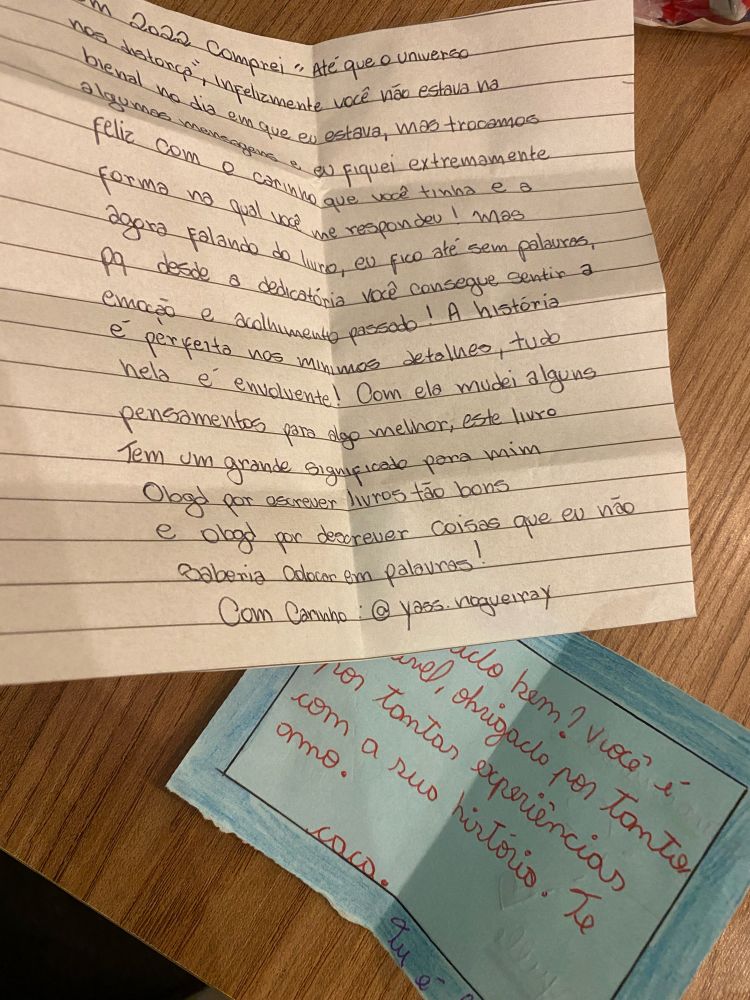 m 2022 comprei "Até que o universo
nos distorça", infelizmente você não estava na
bienal no dia em que eu estava, mas trocamos
algumas mensagens e eu fiquei extremamente
feliz com o carinho que você tinha e a
forma na qual você me respondeu! Mas
agora falando do livro, eu fico até sem palavras,
pq desde a dedicatória você consegue sentir a
emoção e acolhimento passado! A história
é perfeita nos mínimos detalhes, tudo
nela é envolvente! Com ela mudei alguns
pensamentos para algo melhor, este livro
Tem um grande significado para mim
Obgd por escrever livros tão bons
e obgd por descrever coisas que eu não
saberia colocar em palavras!
Com Carinho: @yass.nogueiray
bem? você é
obrigado por tanto
por tantas experiências
com a sua história. Te
amo.
Tu é